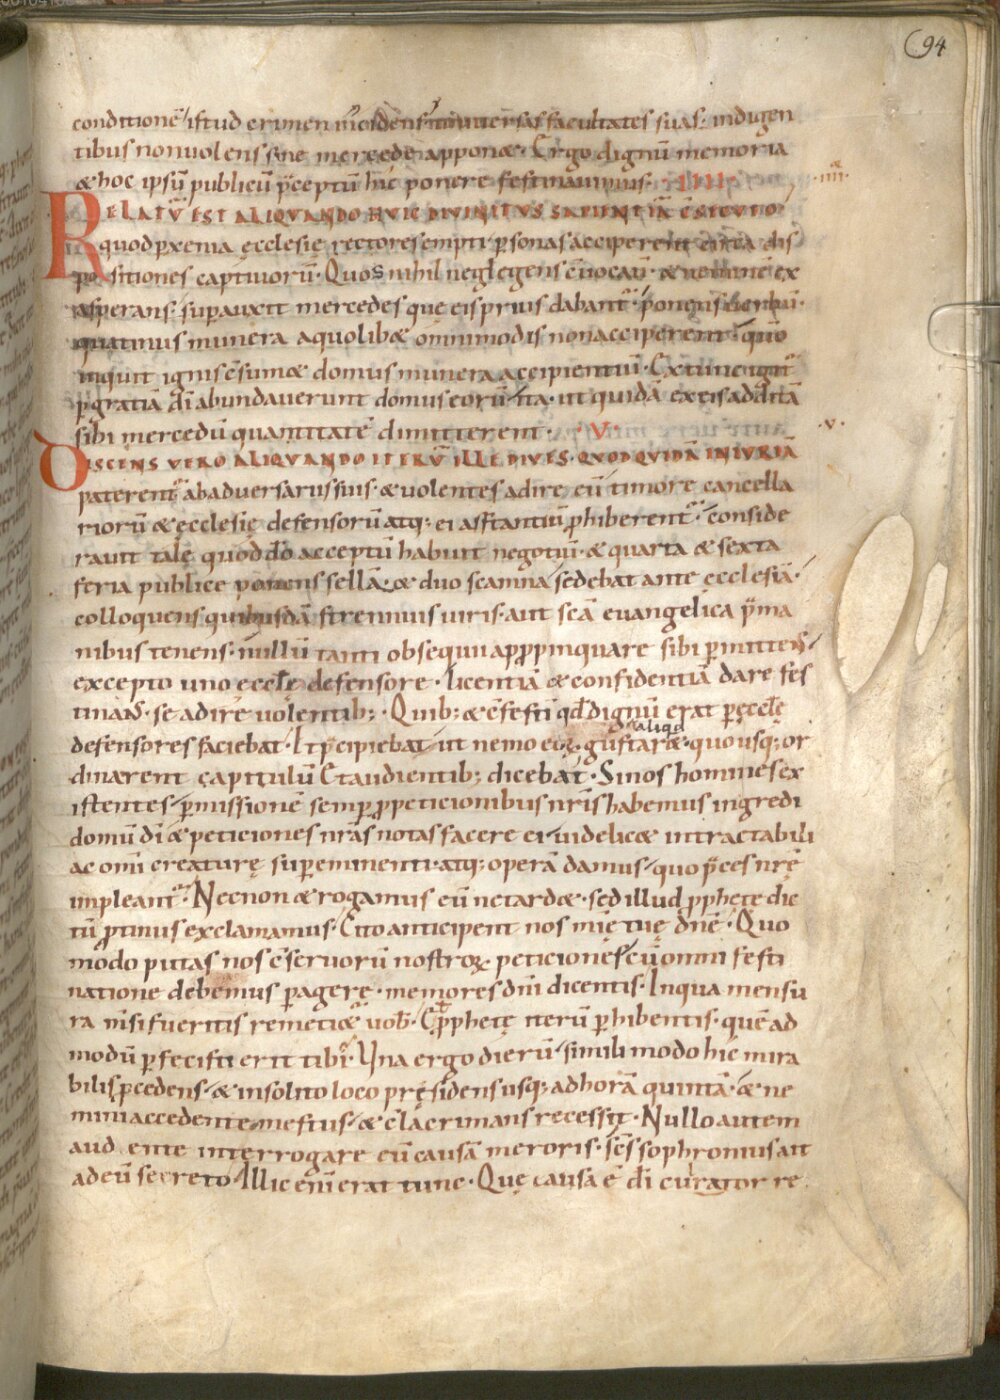 94
conditionē istud crimen incidens universas facultates suas. indigen
tibus non volens sine mercede apponæ. Ergo dignū memoria
& hoc ipsū publicū p̄ceptū hic ponere festinavimus. IIII.
RELATŪ EST ALIQUANDO HUIC DIVINITUS SAPIENTIĀ C̄SECUTO
quod p xenia ecclesie rectores empti psonas acciperent circa dis
positiones captivorū. Quos nihil neglegens c̄vocavit & neminē ex
asperans. supauxit mercedes que eis prius dabant ponens verbū.
quatinus munera a quolib& omnimodis non acciperent. quō
inquit ignis c̄sum& domus munera accipientiū. Ex tunc igit
p gratiā dī abundaverunt domus eorū ita. ut quidā ex eis additā
sibi mercedū quantitatē dimitterent. V.
DISCENS VERO ALIQUANDO ITERŪ ILLE DIVES. QUOD QUIDĀ INIURIĀ
paterent ab adversariis suis. & volentes adire eū timore cancella
riorū & ecclesię defensorū atq; ei asstantiū phiberent. conside
ravit tale quod dō acceptū habuit negotiū. & quarta & sexta
feria publice ponens sellā. & duo scamna sedebat ante ecclesiā.
colloquens quibusdā strenuis viris. aut scā evangelica p̄ ma
nibus tenens. nullū tanti obsequii appropinquare sibi pmittens
excepto uno eccłę defensore. licentiā & confidentiā dare fes
tinans. se adire volentib;. Quib; & c̄festi qd dignū erat p ęccłę
defensores faciebat. Et p̄cipiebat ut nemo eoꝝ gustar& aliqd quousq; or
dinarent capitulū Et audientib; dicebat. Si nos homines ex
istentes pmissionē semp p peticionibus nr̄is habemus ingredi
domū dī & peticiones nr̄as notas facere ei videlic& intractabili
ac omī creaturę supeminenti. atq; operā damus quo p̄ces nr̄ę
impleant. Necnon & rogamus eū ne tard&. sed illud pphetę dic
tū protinus exclamamus. Cito anticipent nos mię tuę dn̄e. Quo
modo putas nos c̄servorū nostroꝝ peticiones cū omni festi
natione debemus pagerę. memores dn̄i dicentis. In qua mensu
ra m̄si fueritis remeti& vob. Et pphetę iterū phibentis. quē ad
modū pfecisti erit tibi. Una ergo dierū simili modo hic mira
bilis p̄cedens. & insolito loco presidens usq; ad horā quintā. & ne
mini accedente mestus. & c̄lacrimans recessit. Nullo autem
audente interrogare eū causā meroris. scs̄ sophronius ait
ad eū secreto Illic enī erat tunc. Quę causa ē dī curator re